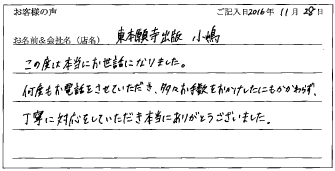 お客様の声 ご記入日2016年 11月 28日
お名前&会社名(店名) 東本願寺出版 小嶋
この度は本当にお世話になりました。
何度もお電話をさせていただき、多々お手数をおかけしたにもかかわらず、
丁寧に対応をしていただき本当にありがとうございました。